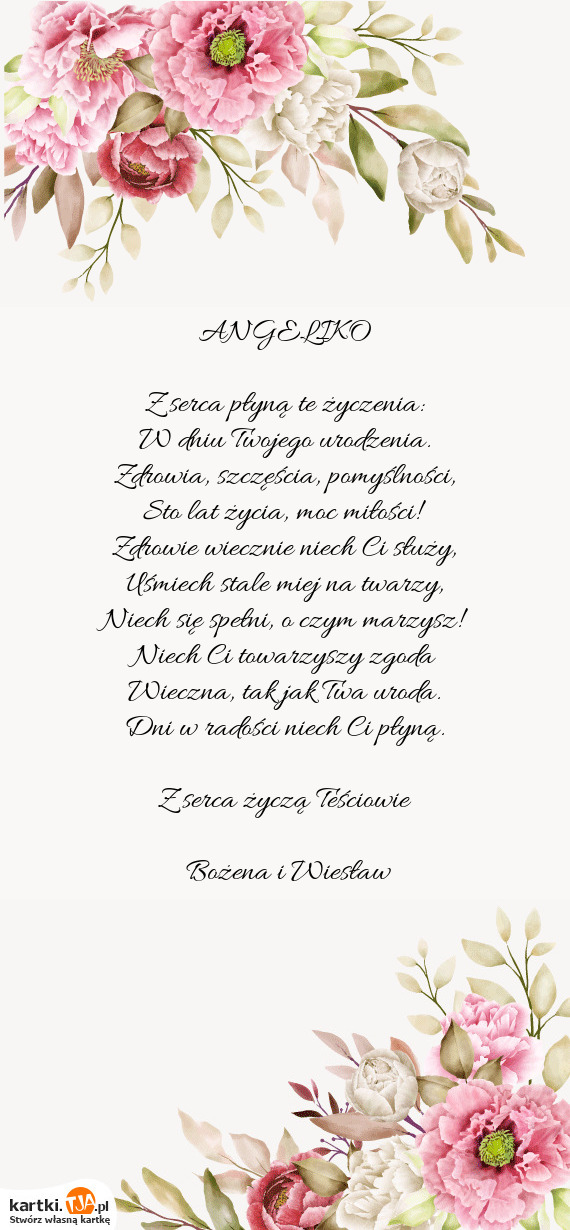 ANGELIKO
Z serca płyną te życzenia:
W dniu Twojego urodzenia.
Zdrowia, szczęścia, pomyślności,
Sto lat życia, moc miłości!
Zdrowie wiecznie niech Ci służy,
Uśmiech stale miej na twarzy,
Niech się spełni, o czym marzysz!
Niech Ci towarzyszy zgoda
Wieczna, tak jak Twa uroda.
Dni w radości niech Ci płyną.
Z serca życzą Teściowie
Bożena i Wiesław
kartki.TJA.pl
Stwórz własną kartkę